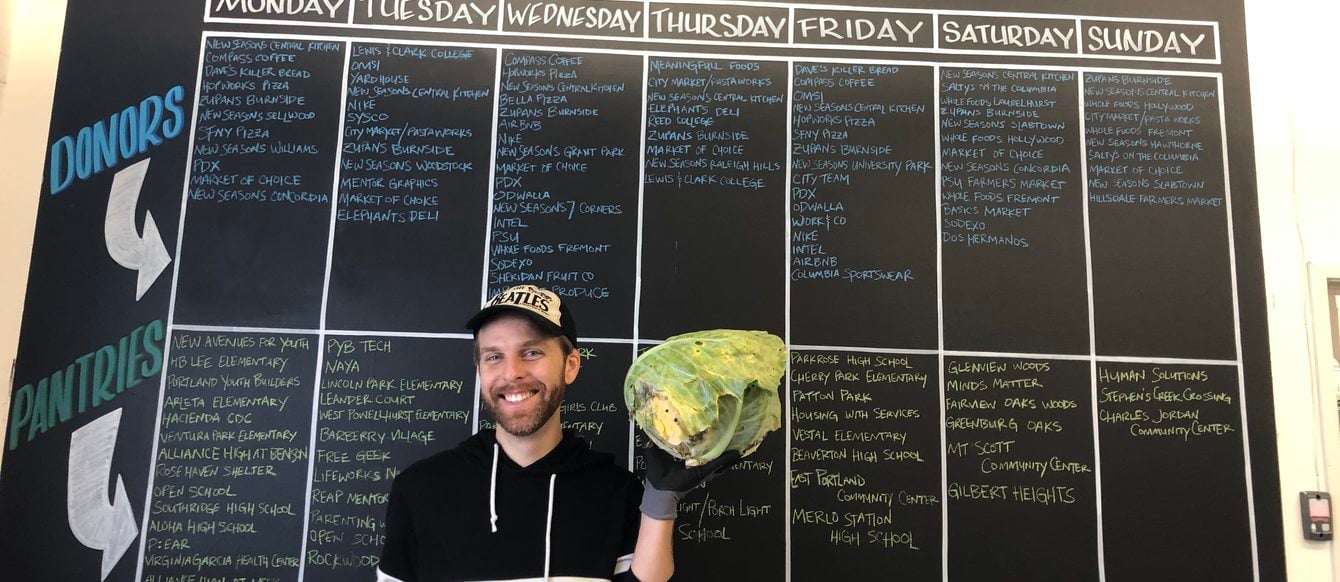 MONDAY
TUESDAY
WEDNESDAY
THURSDAY
FRIDAY
SATURDAY
SUNDAY
DONORS
NEW SEASONS CENTRAL KITCHEN
COMPASS COFFEE
DAVE'S KILLER BREAD
HOPWORKS PIZZA
ZUPANS BURNSIDE
NEW SEASONS SELLWOOD
SFNY PIZZA
NEW SEASONS WILLIAMS
PDX
MARKET OF CHOICE
NEW SEASONS CONCORDIA
LEWIS & CLARK COLLEGE
OMSI
YARDHOUSE
NEW SEASONS CENTRAL KITCHEN
NIKE
SYSCO
CITY MARKET/PASTAWORKS
ZUPANS BURNSIDE
NEW SEASONS WOODSTOCK
MENTOR GRAPHICS
MARKET OF CHOICE
ELEPHANTS DELI
COMPASS COFFEE
HOPWORKS PIZZA
NEW SEASONS CENTRAL KITCHEN
BELLA PIZZA
ZUPANS BURNSIDE
AIRBNB
NIKE
NEW SEASONS GRANT PARK
MARKET OF CHOICE
PDX
ODWALLA
NEW SEASONS 7 CORNERS
INTEL
PSU
WHOLE FOODS FREMONT
SODEXO
SHERIDAN FRUIT CO
PRODUCE
MEANINGFULL FOODS
CITY MARKET/PASTAWORKS
NEW SEASONS CENTRAL KITCHEN
ELEPHANTS DELI
REED COLLEGE
ZUPANS BURNSIDE
MARKET OF CHOICE
NEW SEASONS RALEIGH HILLS
LEWIS & CLARK COLLEGE
DAVE'S KILLER BREAD
COMPASS COFFEE
OMSI
NEW SEASONS CENTRAL KITCHEN
HOPWORKS PIZZA
SFNY PIZZA
ZUPANS BURNSIDE
NEW SEASONS UNIVERSITY PARK
CITY TEAM
PDX
ODWALLA
WORK & CO
NIKE
INTEL
AIRBNB
COLUMBIA SPORTSWEAR
NEW SEASONS CENTRAL KITCHEN
SALTY'S ON THE COLUMBIA
WHOLE FOODS LAURELHURST
ZUPANS BURNSIDE
NEW SEASONS SLABTOWN
WHOLE FOODS HOLLYWOOD
MARKET OF CHOICE
NEW SEASONS CONCORDIA
PSU FARMERS MARKET
WHOLE FOODS FREMONT
BASICS MARKET
SODEXO
DOS HERMANOS
ZUPANS BURNSIDE
NEW SEASONS CENTRAL KITCHEN
WHOLE FOODS HOLLYWOOD
CITY MARKET/PASTA WORKS
WHOLE FOODS FREMONT
NEW SEASONS HAWTHORNE
SALTYS ON THE COLUMBIA
MARKET OF CHOICE
NEW SEASONS SLABTOWN
HILLSDALE FARMERS MARKET
PANTRIES
NEW AVENUES FOR YOUTH
HB LEE ELEMENTARY
PORTLAND YOUTH BUILDERS
ARLETA ELEMENTARY
HACIENDA CDC
VENTURA PARK ELEMENTARY
ALLIANCE HIGH AT BENSON
ROSE HAVEN SHELTER
OPEN SCHOOL
SOUTHRIDGE HIGH SCHOOL
ALOHA HIGH SCHOOL
P:EAR
VIRGINIA GARCIA HEALTH CENTER
ALLIANCE HIGH AT MEEK
PYB TECH
NAYA
LINCOLN PARK ELEMENTARY
LEANDER COURT
WEST POWELLHURST ELEMENTARY
BARBERRY VILLAGE
FREE GEEK
LIFEWORKS
REAP MENTOR
PARENTING
OPEN
ROCKWOOD
GIRLS CLUB
THE
BEATLES
LIGHT/PORCH LIGHT
SCHOOL
PARKROSE HIGH SCHOOL
CHERRY PARK ELEMENTARY
PATTON PARK
HOUSING WITH SERVICES
VESTAL ELEMENTARY
BEAVERTON HIGH SCHOOL
EAST PORTLAND
COMMUNITY CENTER
MERLO STATION
HIGH SCHOOL
GLENVIEW WOODS
MINDS MATTER
FAIRVIEW OAKS WOODS
GREENBURG OAKS
MT SCOTT
COMMUNITY CENTER
GILBERT HEIGHTS
HUMAN SOLUTIONS
STEPHENS CREEK CROSSING
CHARLES JORDAN
COMMUNITY CENTER